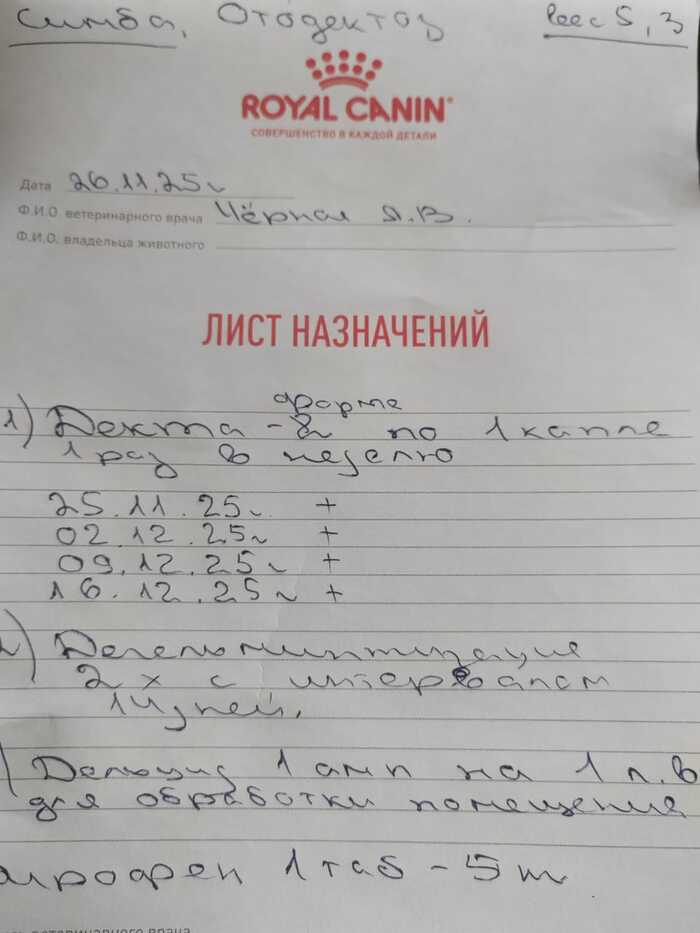 Симба, Отодектоз Вес 5,3
ROYAL CANIN®
СОВЕРШЕНСТВО В КАЖДОЙ ДЕТАЛИ
Дата 26.11.25г
Ф.И.О. ветеринарного врача Чёрная Я.В.
Ф.И.О. владельца животного
ЛИСТ НАЗНАЧЕНИЙ
форте
1) Декта-2 по 1 капле
1 раз в неделю
25.11.25г +
02.12.25г +
09.12.25г +
16.12.25г +
2) Дегельминтизация
2х с интервалом
14 дней.
1 амп на 1 л.в
для обработки помещения
1 таб - 5
ветеринарного врача